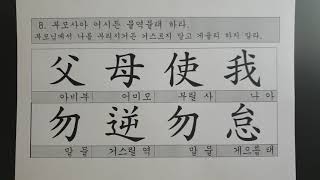 8. 부모사아 어시든 물역물태 하라.
부모님에서 나를 부리시거든 거스르지 말고 게을리 하지 말라.
父 母 使 我
아비부 어미모 부릴 사 나 아
勿 逆 勿 怠
말 물 거스릴 역 말 물 게으름 태